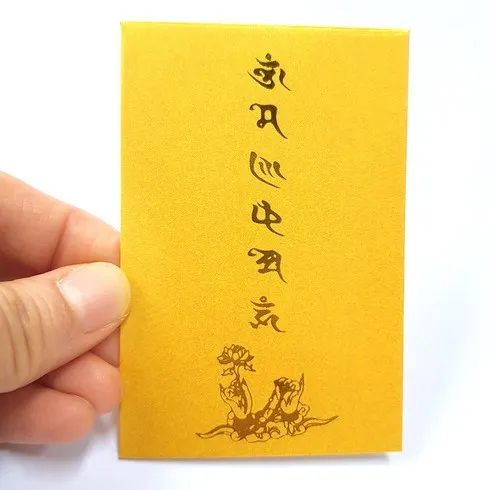 𑖌𑖼
𑖦
𑖜𑖰
𑖢
𑖟𑖿𑖦𑖸
𑖮𑖳𑖽